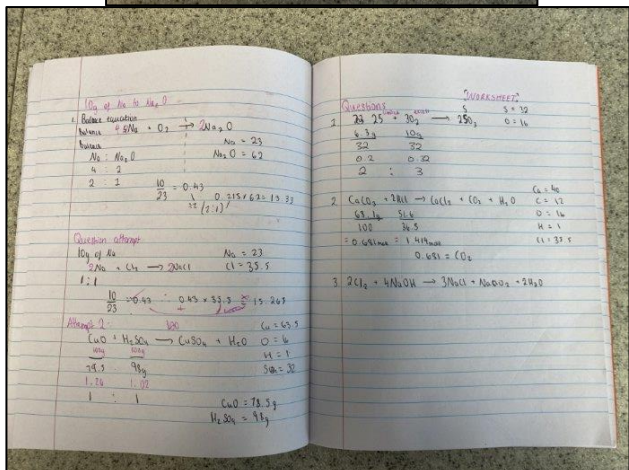 10g of Na to Na₂O
Balance equation
Balance 4Na + O₂ → 2Na₂O
Na = 23
Na : Na₂O
Na₂O = 62
4 : 2
2 : 1
10/23 = 0.43
0.215 x 62 = 13.33
(2:1)
Question attempt
10g of Na
Na = 23
2Na + Cl₂ → 2NaCl
Cl = 35.5
1:1
10/23 = 0.43 ∴ 0.43 x 35.5 = 15.265
Attempt 2
100
Cu = 63.5
CuO + H₂SO₄ → CuSO₄ + H₂O
O = 16
100g 100g
H = 1
79.5 98g
S = 32
1.26 1.02
1 : 1
CuO = 79.5g
H₂SO₄ = 98g
"WORKSHEET"
Questions
S = 32
1 2S + 3O₂ → 2SO₃
O = 16
6.3g 10g
32 32
0.2 0.32
2 : 3
Ca = 40
2 CaCO₃ + 2HCl → CaCl₂ + CO₂ + H₂O
C = 12
68.1g 51.6
O = 16
100 36.5
H = 1
= 0.681 = 1.419
Cl = 35.5
0.681 = CO₂
3. 2Cl₂ + 4NaOH → 3NaCl + NaClO₂ + 2H₂O